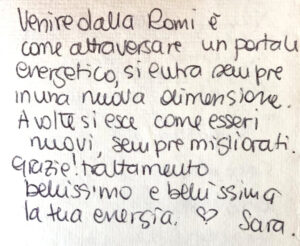 Venire dalla Romi è
come attraversare un portale
energetico, si entra sempre
in una nuova dimensione.
A volte si esce come esseri
nuovi, sempre migliorati.
Grazie! trattamento
bellissimo e bellissima
la tua energia. ♡ Sara.